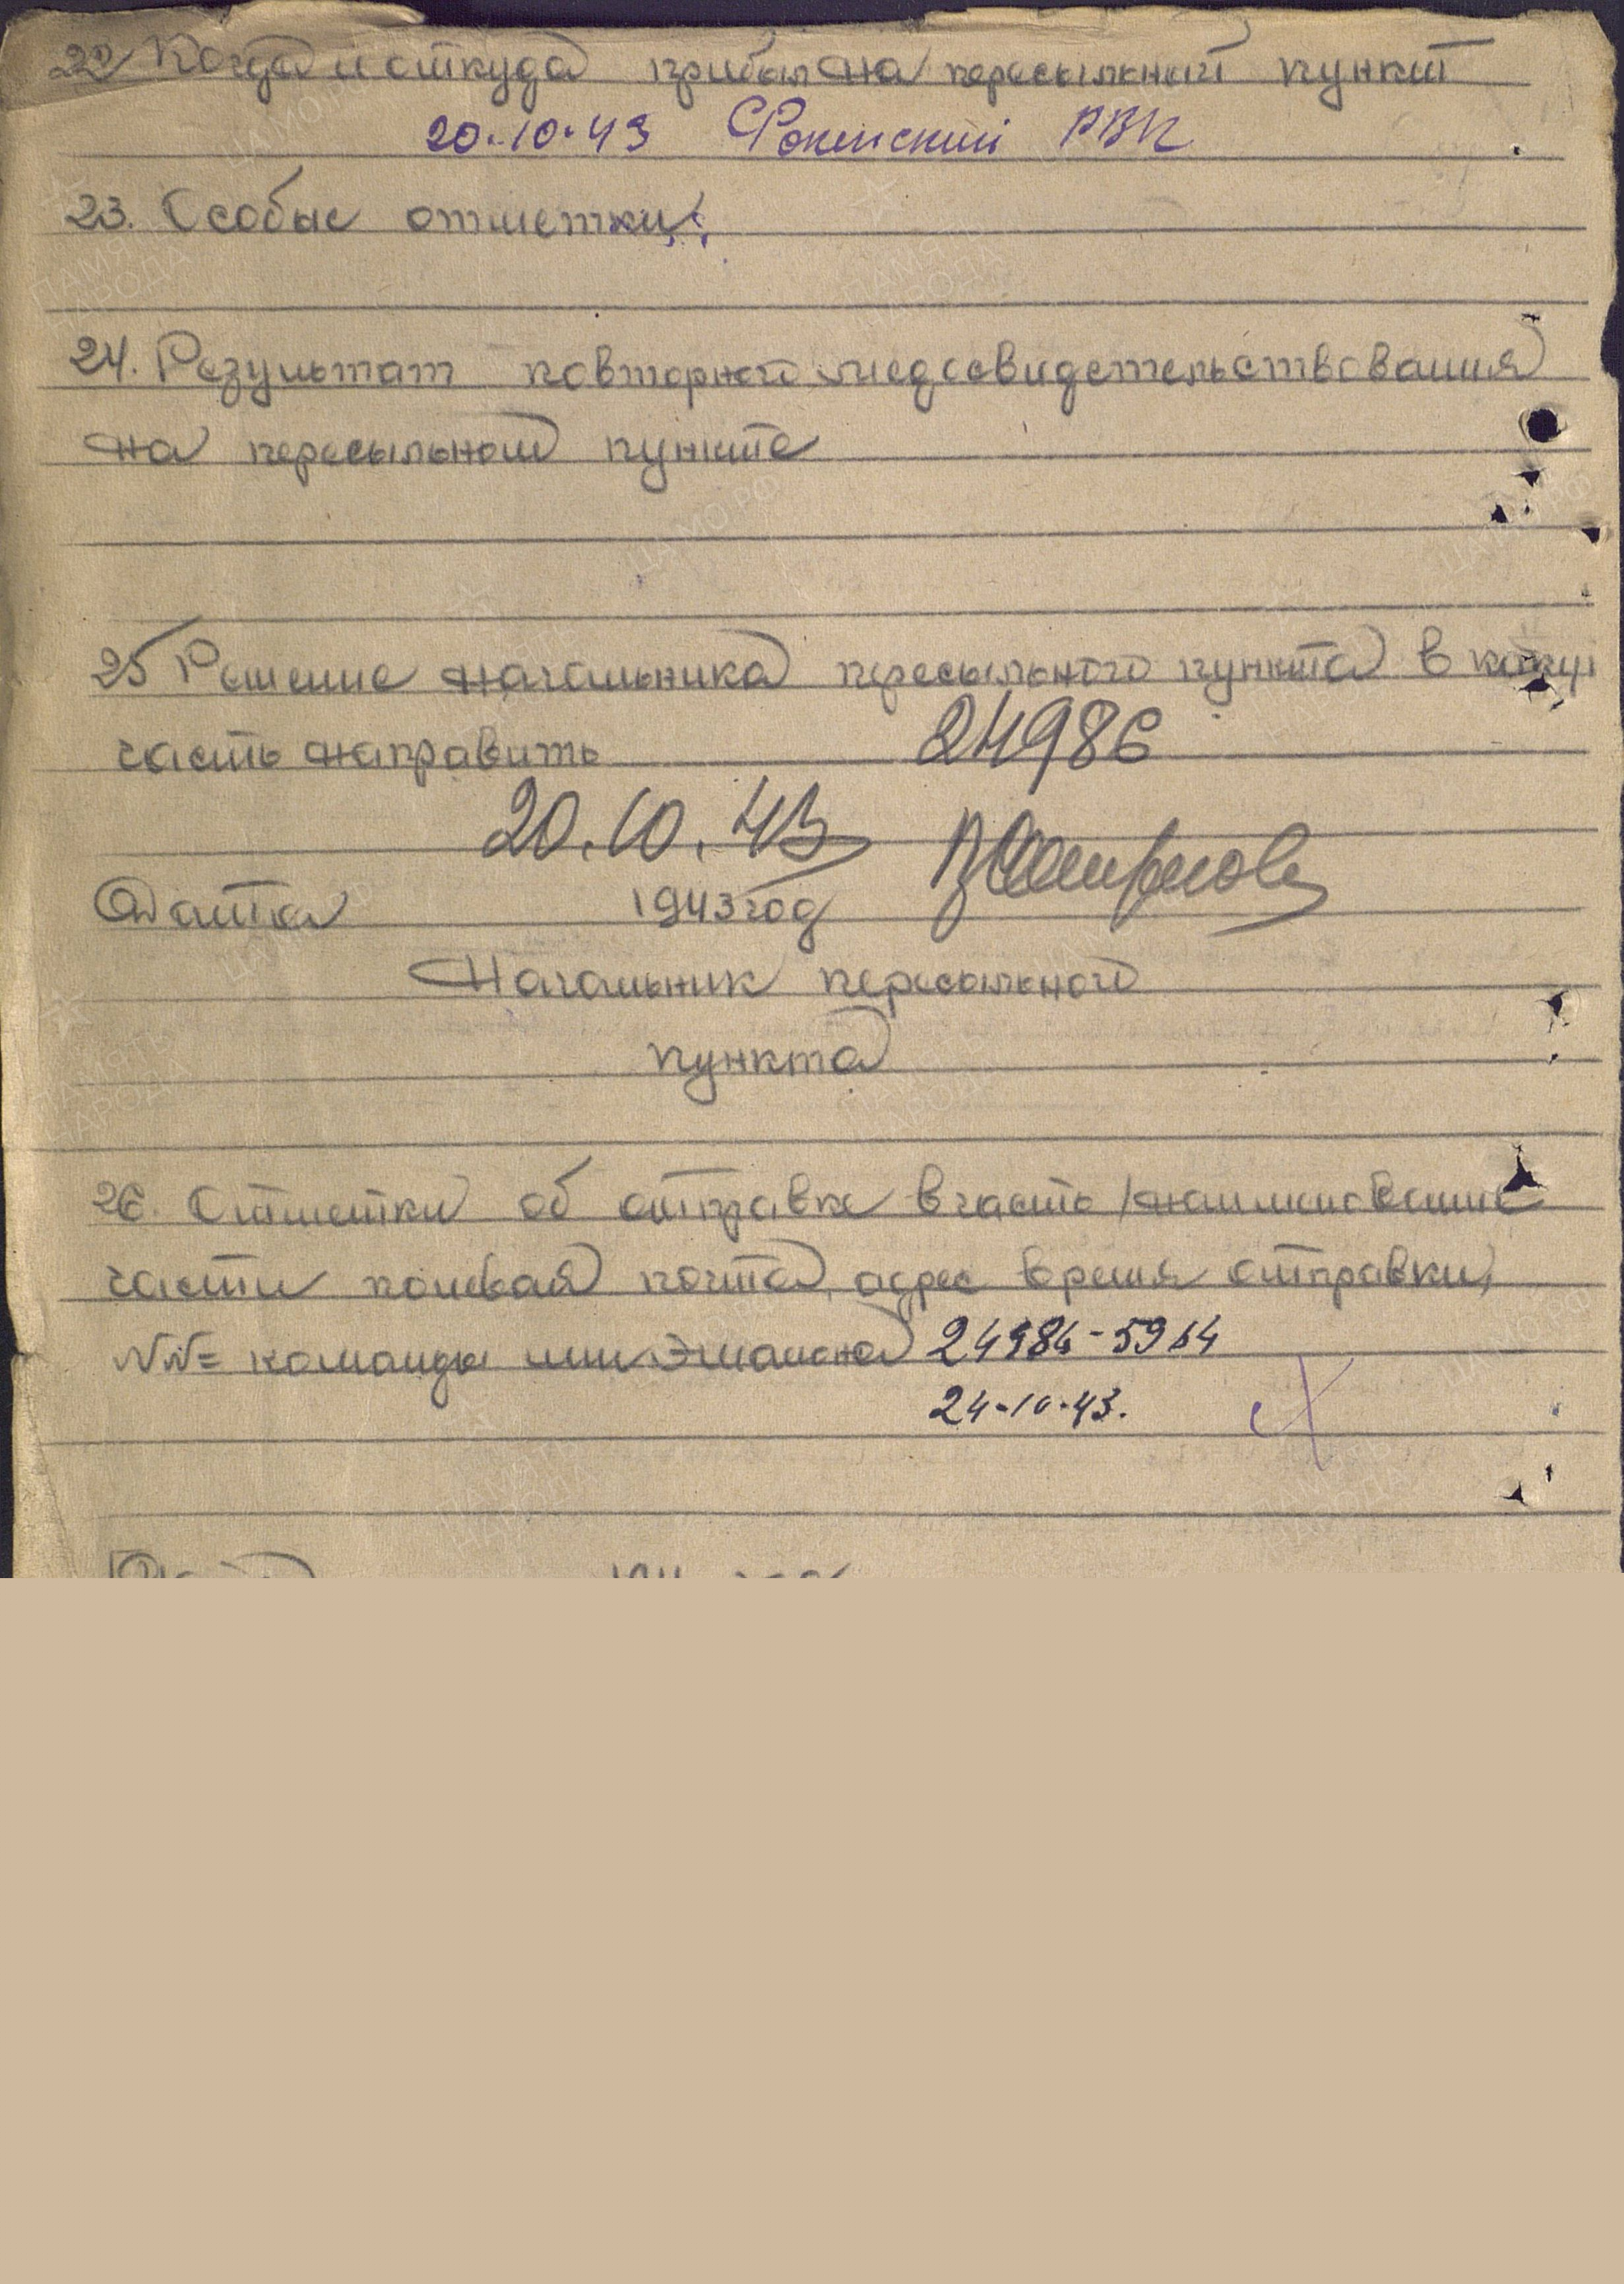 22 Когда и откуда прибыл на пересыльный пункт
20.10.43 Фокинский РВК
23. Особые отметки:
24. Результат повторного медосвидетельствования
на пересыльном пункте
25 Решение начальника пересыльного пункта в какую
часть направить 24986
20.10.43
Дата 1943 год
Начальник пересыльного
пункта
26. Отметки об отправке в часть /наименование
части полевая почта, адрес время отправки,
NN= команды или эшалона 24986-5964
24-10-43.